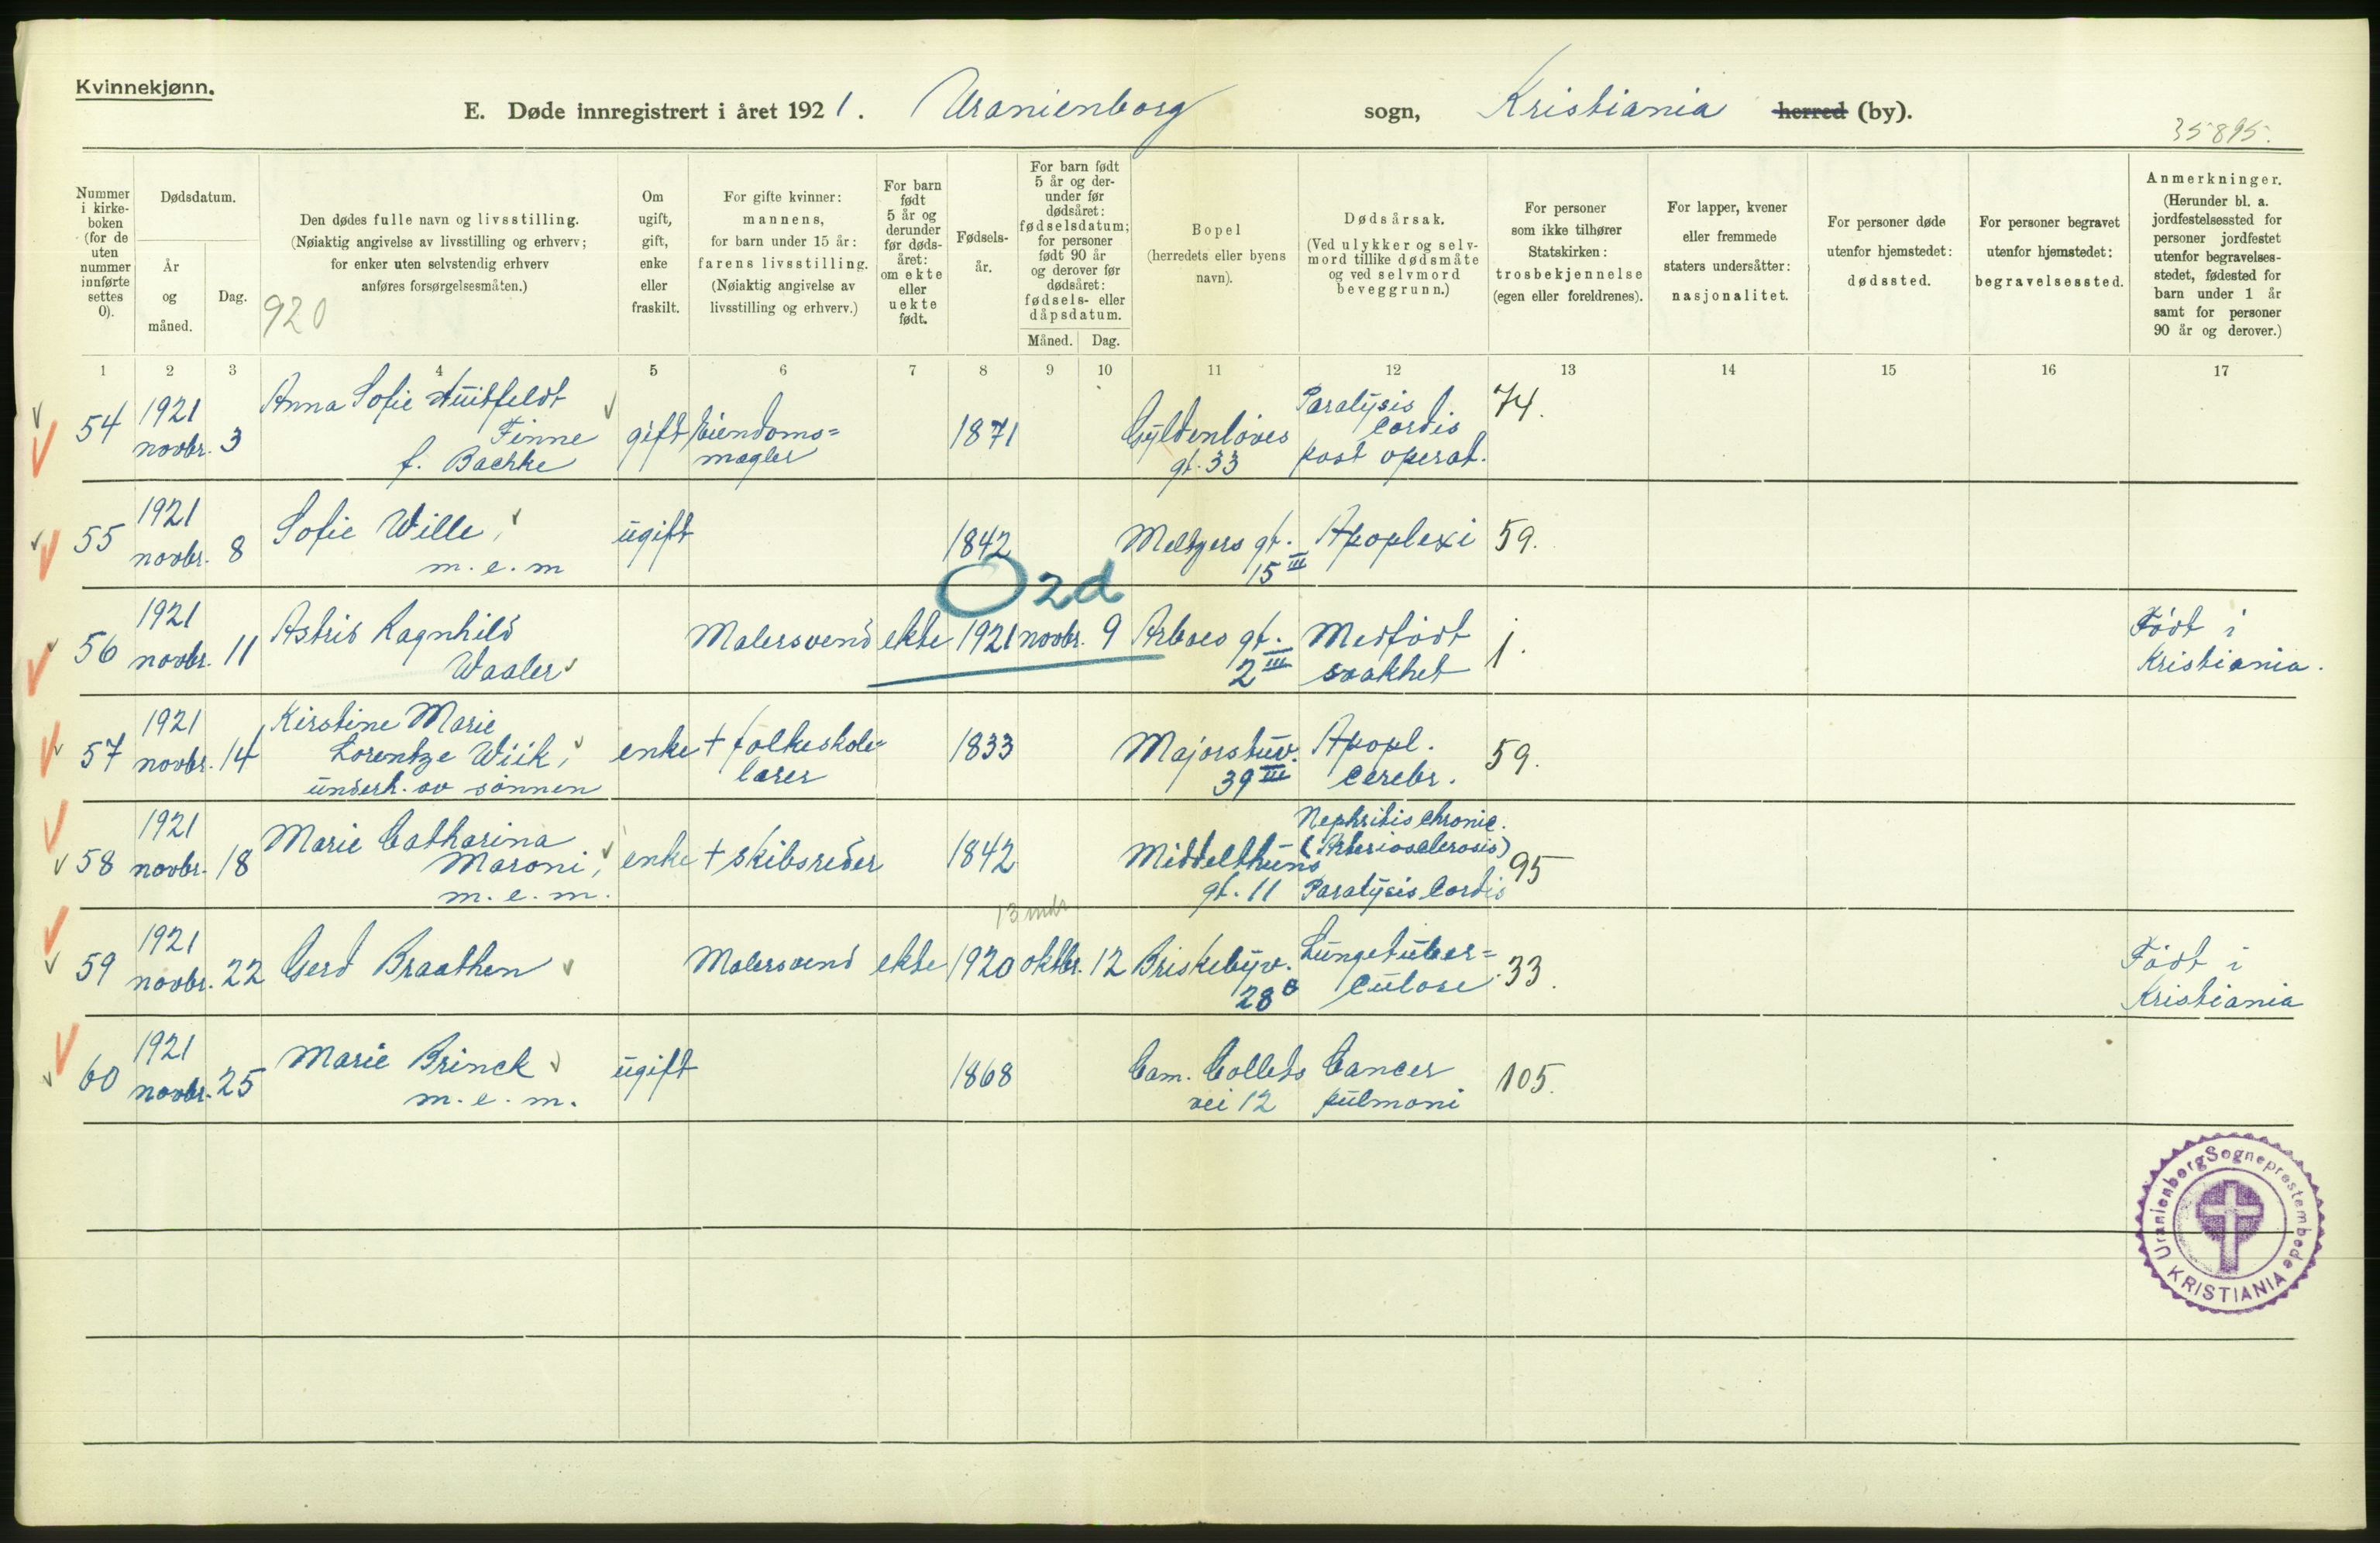 Kvinnekjønn.
E. Døde innregistrert i året 1921. Uranienborg sogn, Kristiania herred (by).
35895.
Nummer i kirke-boken (for de uten nummer innførte settes 0).
Dødsdatum.
År og måned.
Dag.
Den dødes fulle navn og livsstilling.
(Nøiaktig angivelse av livsstilling og erhverv;
for enker uten selvstendig erhverv
anføres forsørgelsesmåten.)
920
Om ugift, gift, enke eller fraskilt.
For gifte kvinner:
mannens,
for barn under 15 år:
farens livsstilling.
(Nøiaktig angivelse av
livsstilling og erhverv.)
For barn født 5 år og derunder før døds-året: om ekte eller uekte født.
Fødsels-år.
For barn født 5 år og der-under før dødsåret: fødselsdatum; for personer født 90 år og derover før dødsåret: fødsels- eller dåpsdatum.
Måned.
Dag.
Bopel
(herredets eller byens
navn).
Dødsårsak.
(Ved ulykker og selv-
mord tillike dødsmåte
og ved selvmord
beveggrunn.)
For personer
som ikke tilhører
Statskirken:
trosbekjennelse
(egen eller foreldrenes).
For lapper, kvener
eller fremmede
staters undersåtter:
nasjonalitet.
For personer døde
utenfor hjemstedet:
dødssted.
For personer begravet
utenfor hjemstedet:
begravelsessted.
Anmerkninger.
(Herunder bl. a.
jordfestelsessted for
personer jordfestet
utenfor begravelses-
stedet, fødested for
barn under 1 år
samt for personer
90 år og derover.)
1 2 3 4 5 6 7 8 9 10 11 12 13 14 15 16 17
54 1921 novbr. 3
Anna Sofie Huitfeldt
Finne
f. Bachke
gift
Eiendoms=
megler
1871
Gyldenløves
gt. 33
Paralysis
Cordis
post operat.
74.
55 1921 novbr. 8
Sofie Wille,
m. e. m
ugift
1842
Meltzers gt.
15 III
Apoplexi
59.
O 2d
56 1921 novbr. 11
Astrid Ragnhild
Waaler
Malersvend
ekte
1921 novbr. 9
Arboes gt.
2 III
Medfødt
svakhet
1.
Født i
Kristiania.
57 1921 novbr. 14
Kirstine Marie
Lorentze Wiik,
underh. av sønnen
enke
+ folkeskole=
lærer
1833
Majorstuv.
39 III
Apopl.
cerebr.
59.
58 1921 novbr. 18
Marie Catharina
Maroni,
m. e. m.
enke
+ skibsreder
1842
Middelthuns
gt. 11
Nephritis chronic.
(Arteriosclerosis)
Paralysis Cordis
95
13 mdr
59 1921 novbr. 22
Gerd Braathen
Malersvend
ekte
1920 oktbr. 12
Briskebyv.
28
Lungetuber=
culose
33.
Født i
Kristiania
60 1921 novbr. 25
Marie Brinck
m. e. m.
ugift
1868
Cam. Collets
vei 12
Cancer
pulmoni
105.
Uranienborg Sogneprestembede
KRISTIANIA